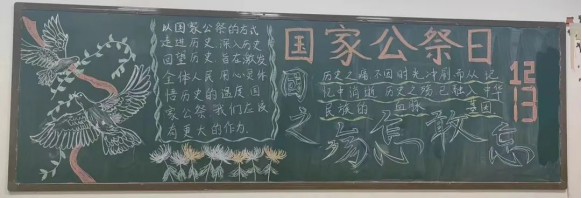 以国家公祭的方式
走进历史 深入历史
回望历史 旨在激发
全体人民 用心灵体
悟历史的速度 国
家公祭 我们应该
有更大的作为.
国家公祭日
12
13
历史之痛不因时光冲刷而从记
忆中消逝 历史之殇已融入中华
民族的 血脉 基因
國之殇 怎敢忘